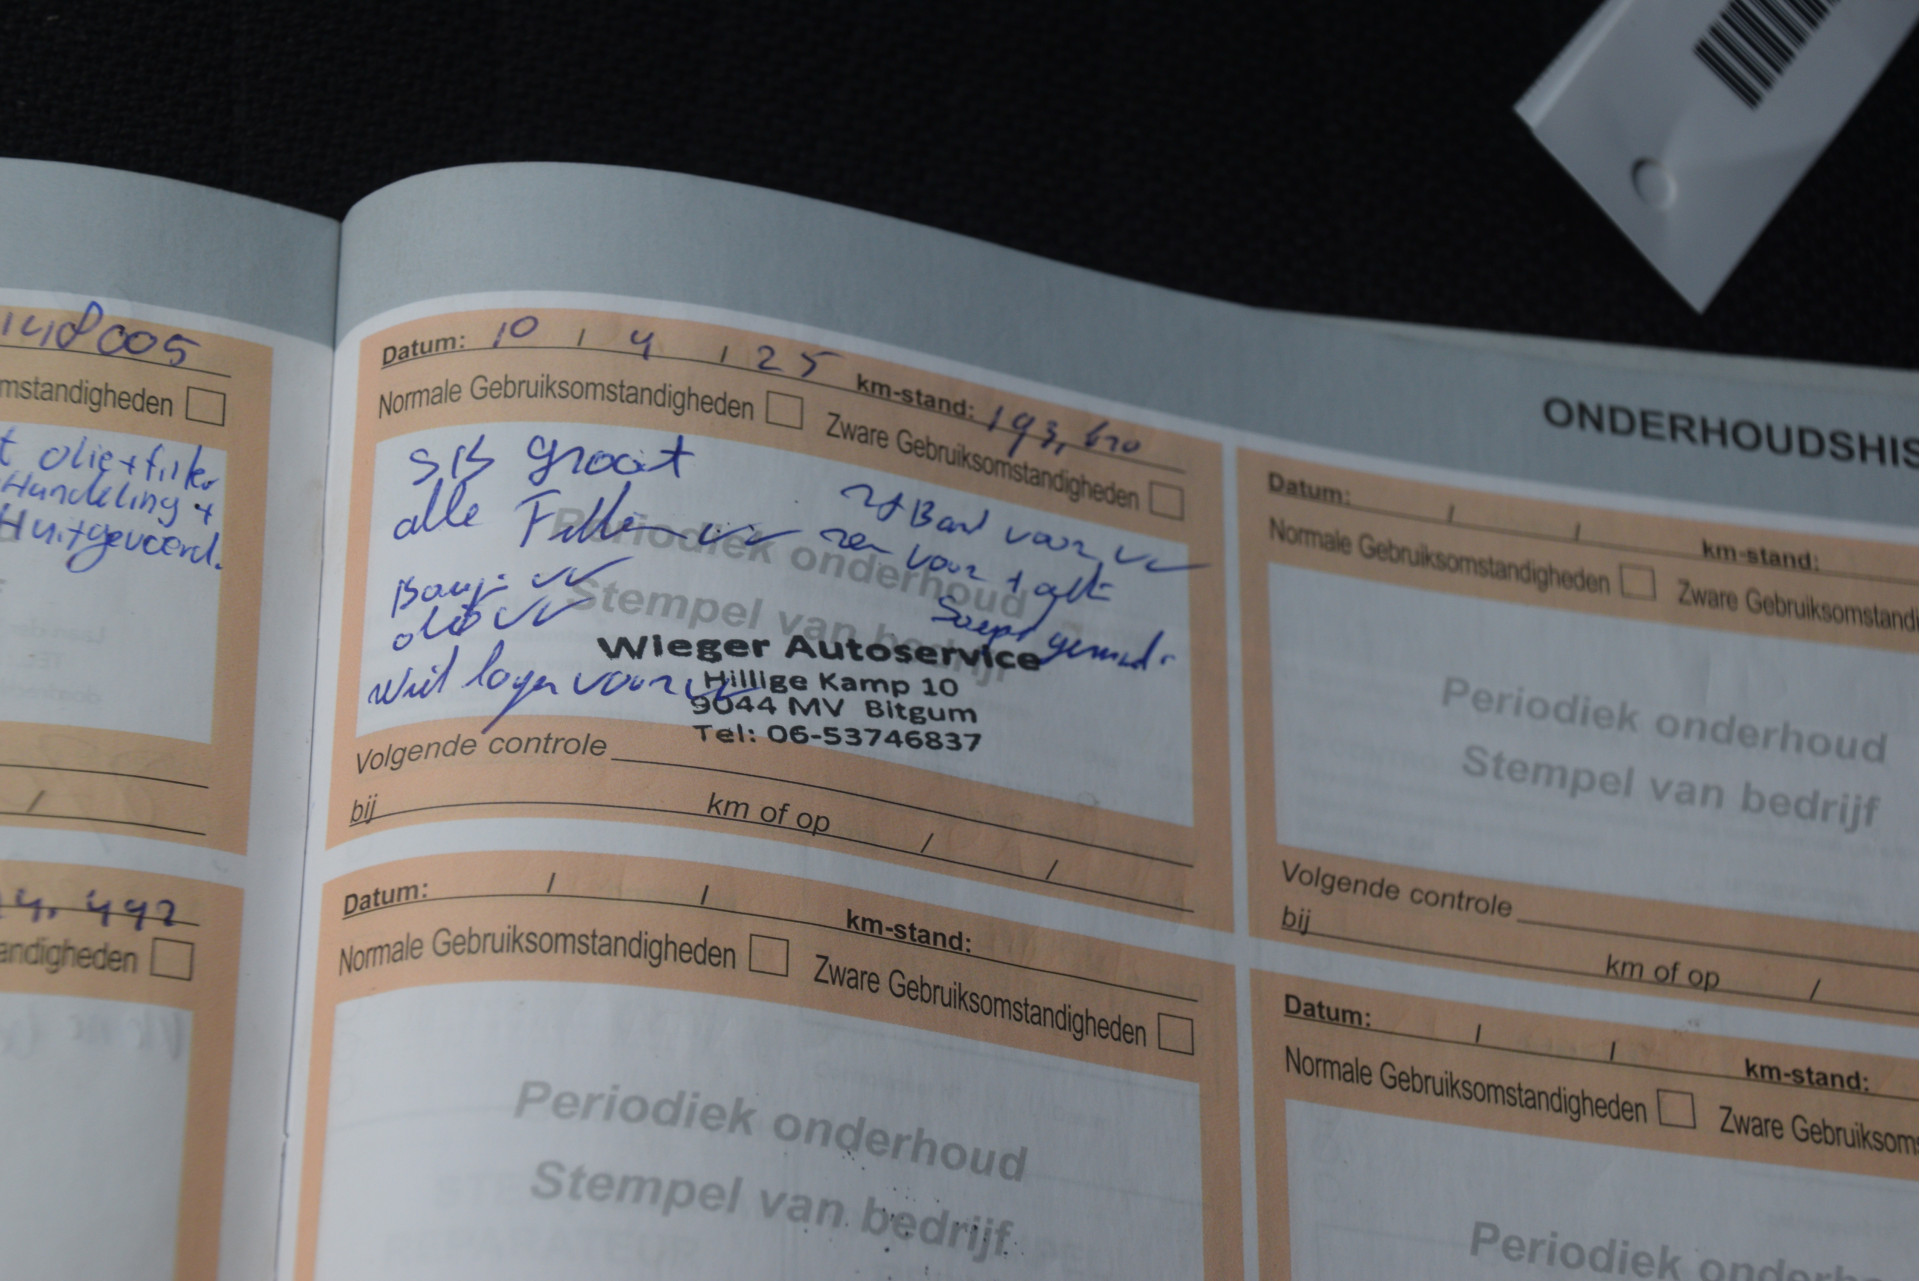 148005
mstandigheden
t olie+filter
Handeling +
Huitgevoerd.
4.492
andigheden
ONDERHOUDSHIS
Datum: 10 / 4 / 25 km-stand: 193,610
Normale Gebruiksomstandigheden Zware Gebruiksomstandigheden
groot
alle
voor
voor +
olie
voor
Periodiek onderhoud
Stempel van bedrijf
Wieger Autoservice
Hillige Kamp 10
9044 MV Bitgum
Tel: 06-53746837
Volgende controle
bij km of op / /
Datum: / / km-stand:
Normale Gebruiksomstandigheden Zware Gebruiksomstandigheden
Periodiek onderhoud
Stempel van bedrijf
Datum: / / km-stand:
Normale Gebruiksomstandigheden Zware Gebruiksomstandi
Periodiek onderhoud
Stempel van bedrijf
Volgende controle
bij km of op /
Datum: / / km-stand:
Normale Gebruiksomstandigheden Zware Gebruiksoms
Periodiek onderh